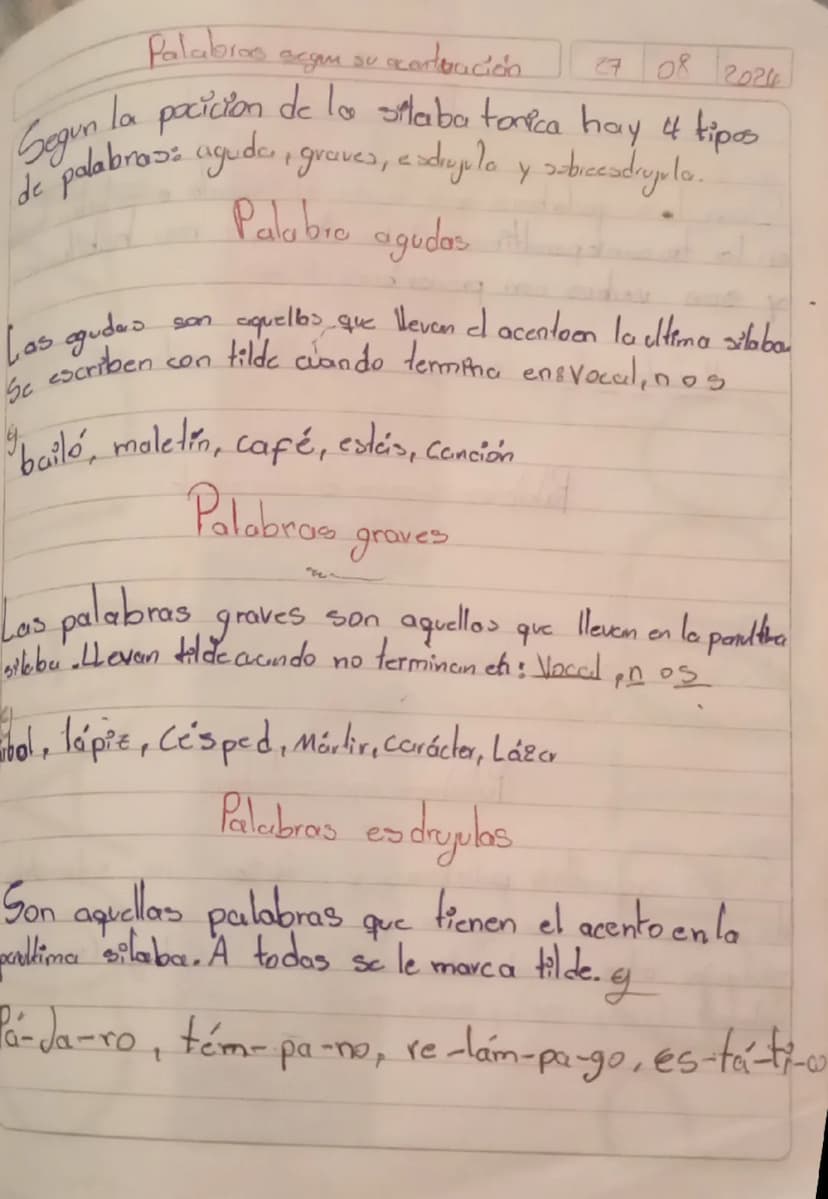 Palabras segun su acentuación 27 08 2024
Segun la pocición de la silaba tonica hay 4 tipos
de palabras: aguda, graves, esdrujula y sobreesdrujula.
Palabra agudas
Las agudas son aquellas que llevan el acentoen la ultima silaba.
Se escriben con tilde cuando termina en:vocal, n o s
ej
bailó, maletín, café, estás, canción
Palabras graves
Las palabras graves son aquellas que llevan en la
. Llevan tilde no terminan en: Vocal, n o s
bol, lápiz, Césped, Mártir, carácter, Lázar
Palabras esdrujulas
Son aquellas palabras que tienen el acento en la
silaba. A todas se le marca tilde. ej
Pá-Ja-ro, tém-pa-no, re-lám-pa-go, es-tá-ti-co